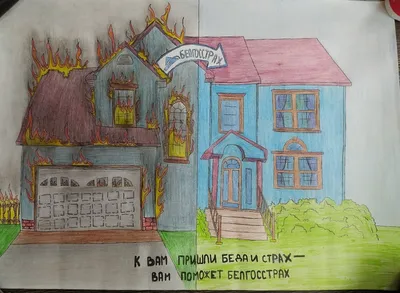 БЕЛГОССТРАХ
К ВАМ ПРИШЛИ БЕДА И СТРАХ—
ВАМ ПОМОЖЕТ БЕЛГОССТРАХ